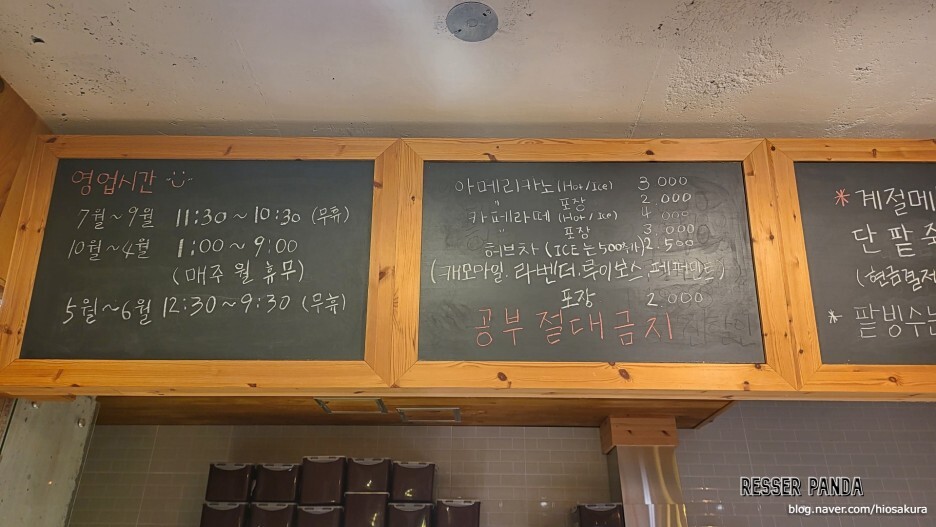 영업시간
7월~9월 11:30~10:30 (무휴)
10월~4월 1:00~9:00
(매주 월 휴무)
5월~6월 12:30~9:30 (무휴)
아메리카노(Hot/Ice) 3 000
" 포장 2.000
카페라떼(Hot/Ice) 4 000
" 포장 3.000
허브차 (ICE는 500추가) 2.500
(캐모마일. 라벤더. 루이보스. 페퍼민트)
포장 2.000
공부 절대 금지
* 계절메
단팥죽
(현금결제
* 팥빙수는
RESSER PANDA
blog.naver.com/hiosakura